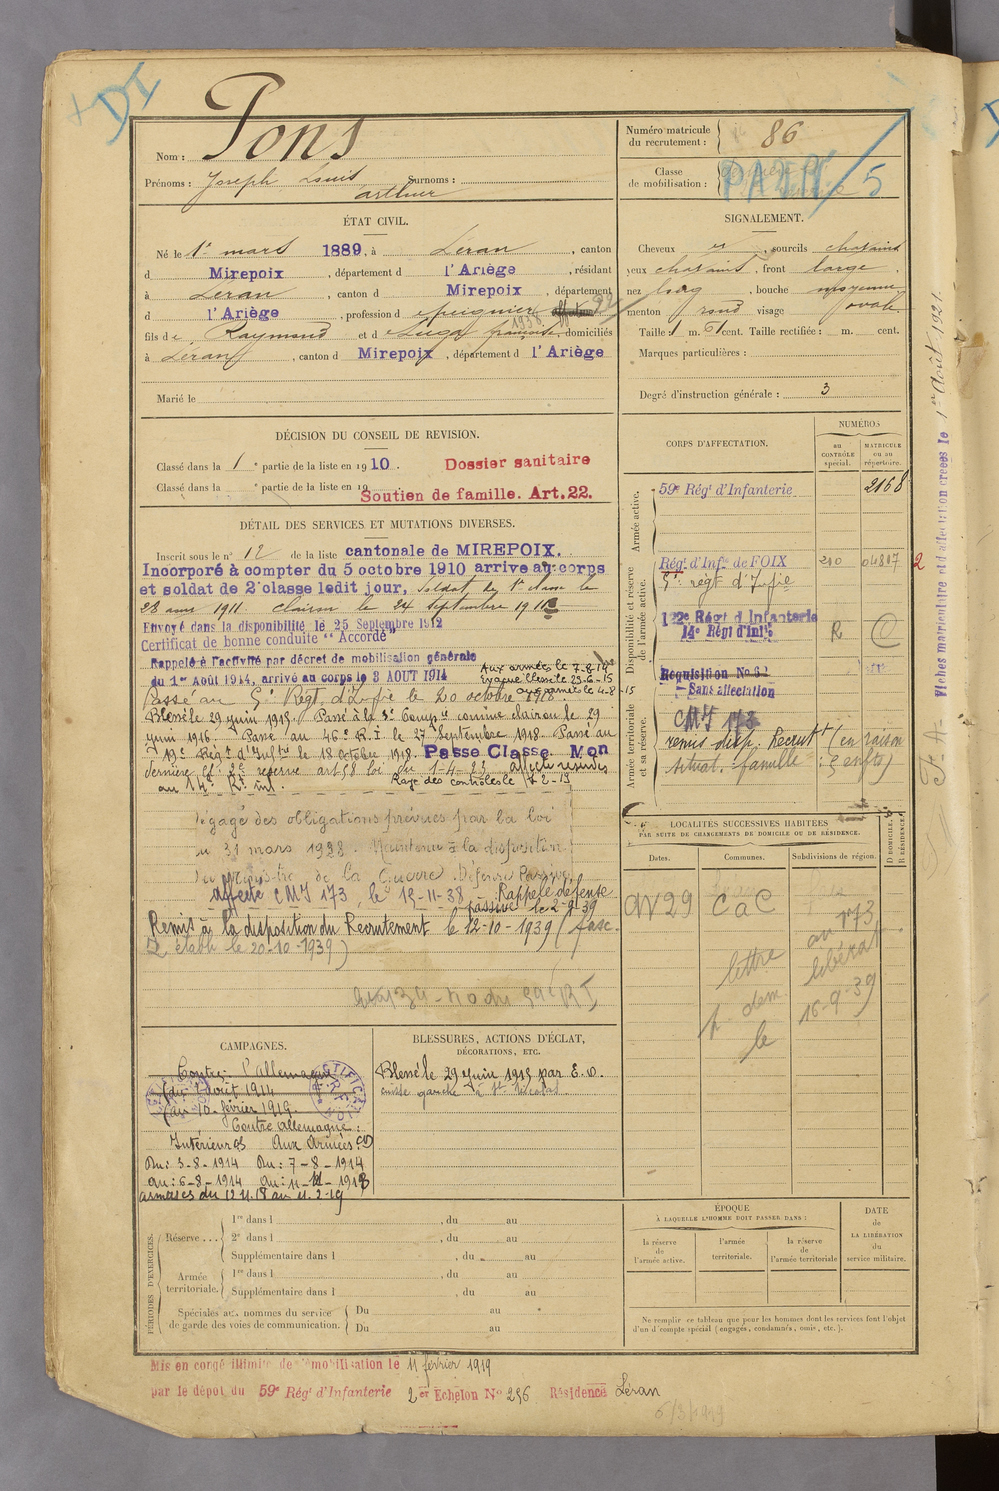 DI
Nom : Pons
Prénoms : Joseph Louis Surnoms :
arthur
Numéro matricule du recrutement : 86
Classe de mobilisation :
5
ÉTAT CIVIL.
Né le 1er mars 1889, à Leran, canton
d Mirepoix, département d l'Ariège, résidant
à Leran, canton d Mirepoix, département
d l'Ariège, profession d
fils de Raymond et d françoise, domiciliés
à Leran, canton d Mirepoix, département d l'Ariège
Marié le
SIGNALEMENT.
Cheveux , sourcils chatains
yeux chatains, front large
nez long, bouche moyenne
menton rond visage ovale
Taille : 1 m. 61 cent. Taille rectifiée : m. cent.
Marques particulières :
Degré d'instruction générale : 3
DÉCISION DU CONSEIL DE REVISION.
Classé dans la 1e partie de la liste en 1910. Dossier sanitaire
Classé dans la e partie de la liste en 19
Soutien de famille. Art. 22.
DÉTAIL DES SERVICES ET MUTATIONS DIVERSES.
Inscrit sous le n° 12 de la liste cantonale de MIREPOIX.
Incorporé à compter du 5 octobre 1910 arrive au corps
et soldat de 2e classe ledit jour, Soldat de 1e classe le
clairon le 24 septembre 1911
Envoyé dans la disponibilité le 25 Septembre 1912
Certificat de bonne conduite "Accordé"
Rappelé à l'activité par décret de mobilisation générale
du 1er Août 1914, arrivé au corps le 3 AOUT 1914
Aux armées le 7-8-14
aux armées le 4-8-15
Passé au 5e Régt d'Infie le 20 octobre
Blessé le 29 juin 1915. Passé à la 3e Compie comme clairon le 29
juin 1916. Passé au 46e R.I le 27 Septembre 1918. Passé au
Régt d'Inftie le 18 octobre 1918. Passe Classe Mon
dernière Cl. 2e reserve art 58 loi du 1-4-23 affecté réserves
au 14e Rt inf. Rayé des controles le
Dégagé des obligations prévues par la loi
du 31 mars 1928. Maintenu à la disposition
du Ministre de la Guerre. Défense Passive
Affecté CMI 173, le 15-11-38. Rappelé défense
passive le 2-9-39
Remis à la disposition du Recrutement le 12-10-1939 (fasc.
établi le 20-10-1939)
CORPS D'AFFECTATION.
NUMÉROS
au CONTRÔLE spécial.
MATRICULE ou au répertoire.
Armée active.
59e Régt d'Infanterie 2168
Disponibilité et réserve de l'armée active.
Régt d'Infie de FOIX 210 04807 2
5e régt d'Infie
122e Régt d'Infanterie
14e Régt d'Infie R C
Réquisition No 62
Sans affectation
Armée territoriale et sa réserve.
CMI 173
remis disp. Recrutt (en raison
situat. famille : 5 enfts)
LOCALITÉS SUCCESSIVES HABITÉES
PAR SUITE DE CHANGEMENTS DE DOMICILE OU DE RÉSIDENCE.
Dates. Communes. Subdivisions de région. D DOMICILE, R RÉSIDENCE
CaC
au 173
lettre libérat
p. dem. 16-9-39
le
CAMPAGNES.
Contre l'Allemagne
du 2 août 1914
au 10 février 1919.
Contre Allemagne :
Intérieur CS Aux Armées : CD
Du : 3-8-1914 Du : 7-8-1914
Au : 6-8-1914 Au : 11-11-1918
armées du 12 11.18 au 11.2-19
BLESSURES, ACTIONS D'ÉCLAT,
DÉCORATIONS, ETC.
Blessé le 29 Juin 1915 par E. O.
cuisse gauche à St Nicolas
PÉRIODES D'EXERCICES.
Réserve....
1re dans l , du au
2e dans l , du au
Supplémentaire dans l , du au
Armée territoriale.
1re dans l , du au
Supplémentaire dans l , du au
Spéciales aux hommes du service de garde des voies de communication.
Du au
Du au
ÉPOQUE
À LAQUELLE L'HOMME DOIT PASSER DANS :
la réserve de l'armée active.
l'armée territoriale.
la réserve de l'armée territoriale
DATE de LA LIBÉRATION du service militaire.
Ne remplir ce tableau que pour les hommes dont les services font l'objet
d'un décompte spécial (engagés, condamnés, omis, etc.).
Mis en congé illimité de démobilisation le 11 février 1919
par le dépôt du 59e Régt d'Infanterie 2er Echelon No 296 Résidence Léran
F. A. Fiches matriculaire et d'affectation créées le 1er Août 1921.